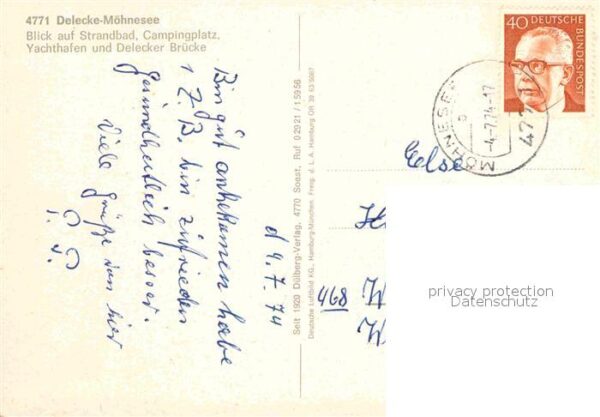 4771 Delecke-Möhnesee
Blick auf Strandbad, Campingplatz,
Yachthafen und Delecker Brücke
d 4.7.74
Bin gut ankekomen habe
1 Z.B. bin zufrieden
gesundheitlich besser.
Viele grüße von hier
Seit 1920 Dülberg-Verlag, 4770 Soest, Ruf 02921/15956
Deutsche Luftbild KG., Hamburg-München. Freig. d. L. A. Hamburg
40 DEUTSCHE
BUNDESPOST
MÖHNESEE
-4.7.74-17
4771
Else
468 W
W
privacy protection
Datenschutz